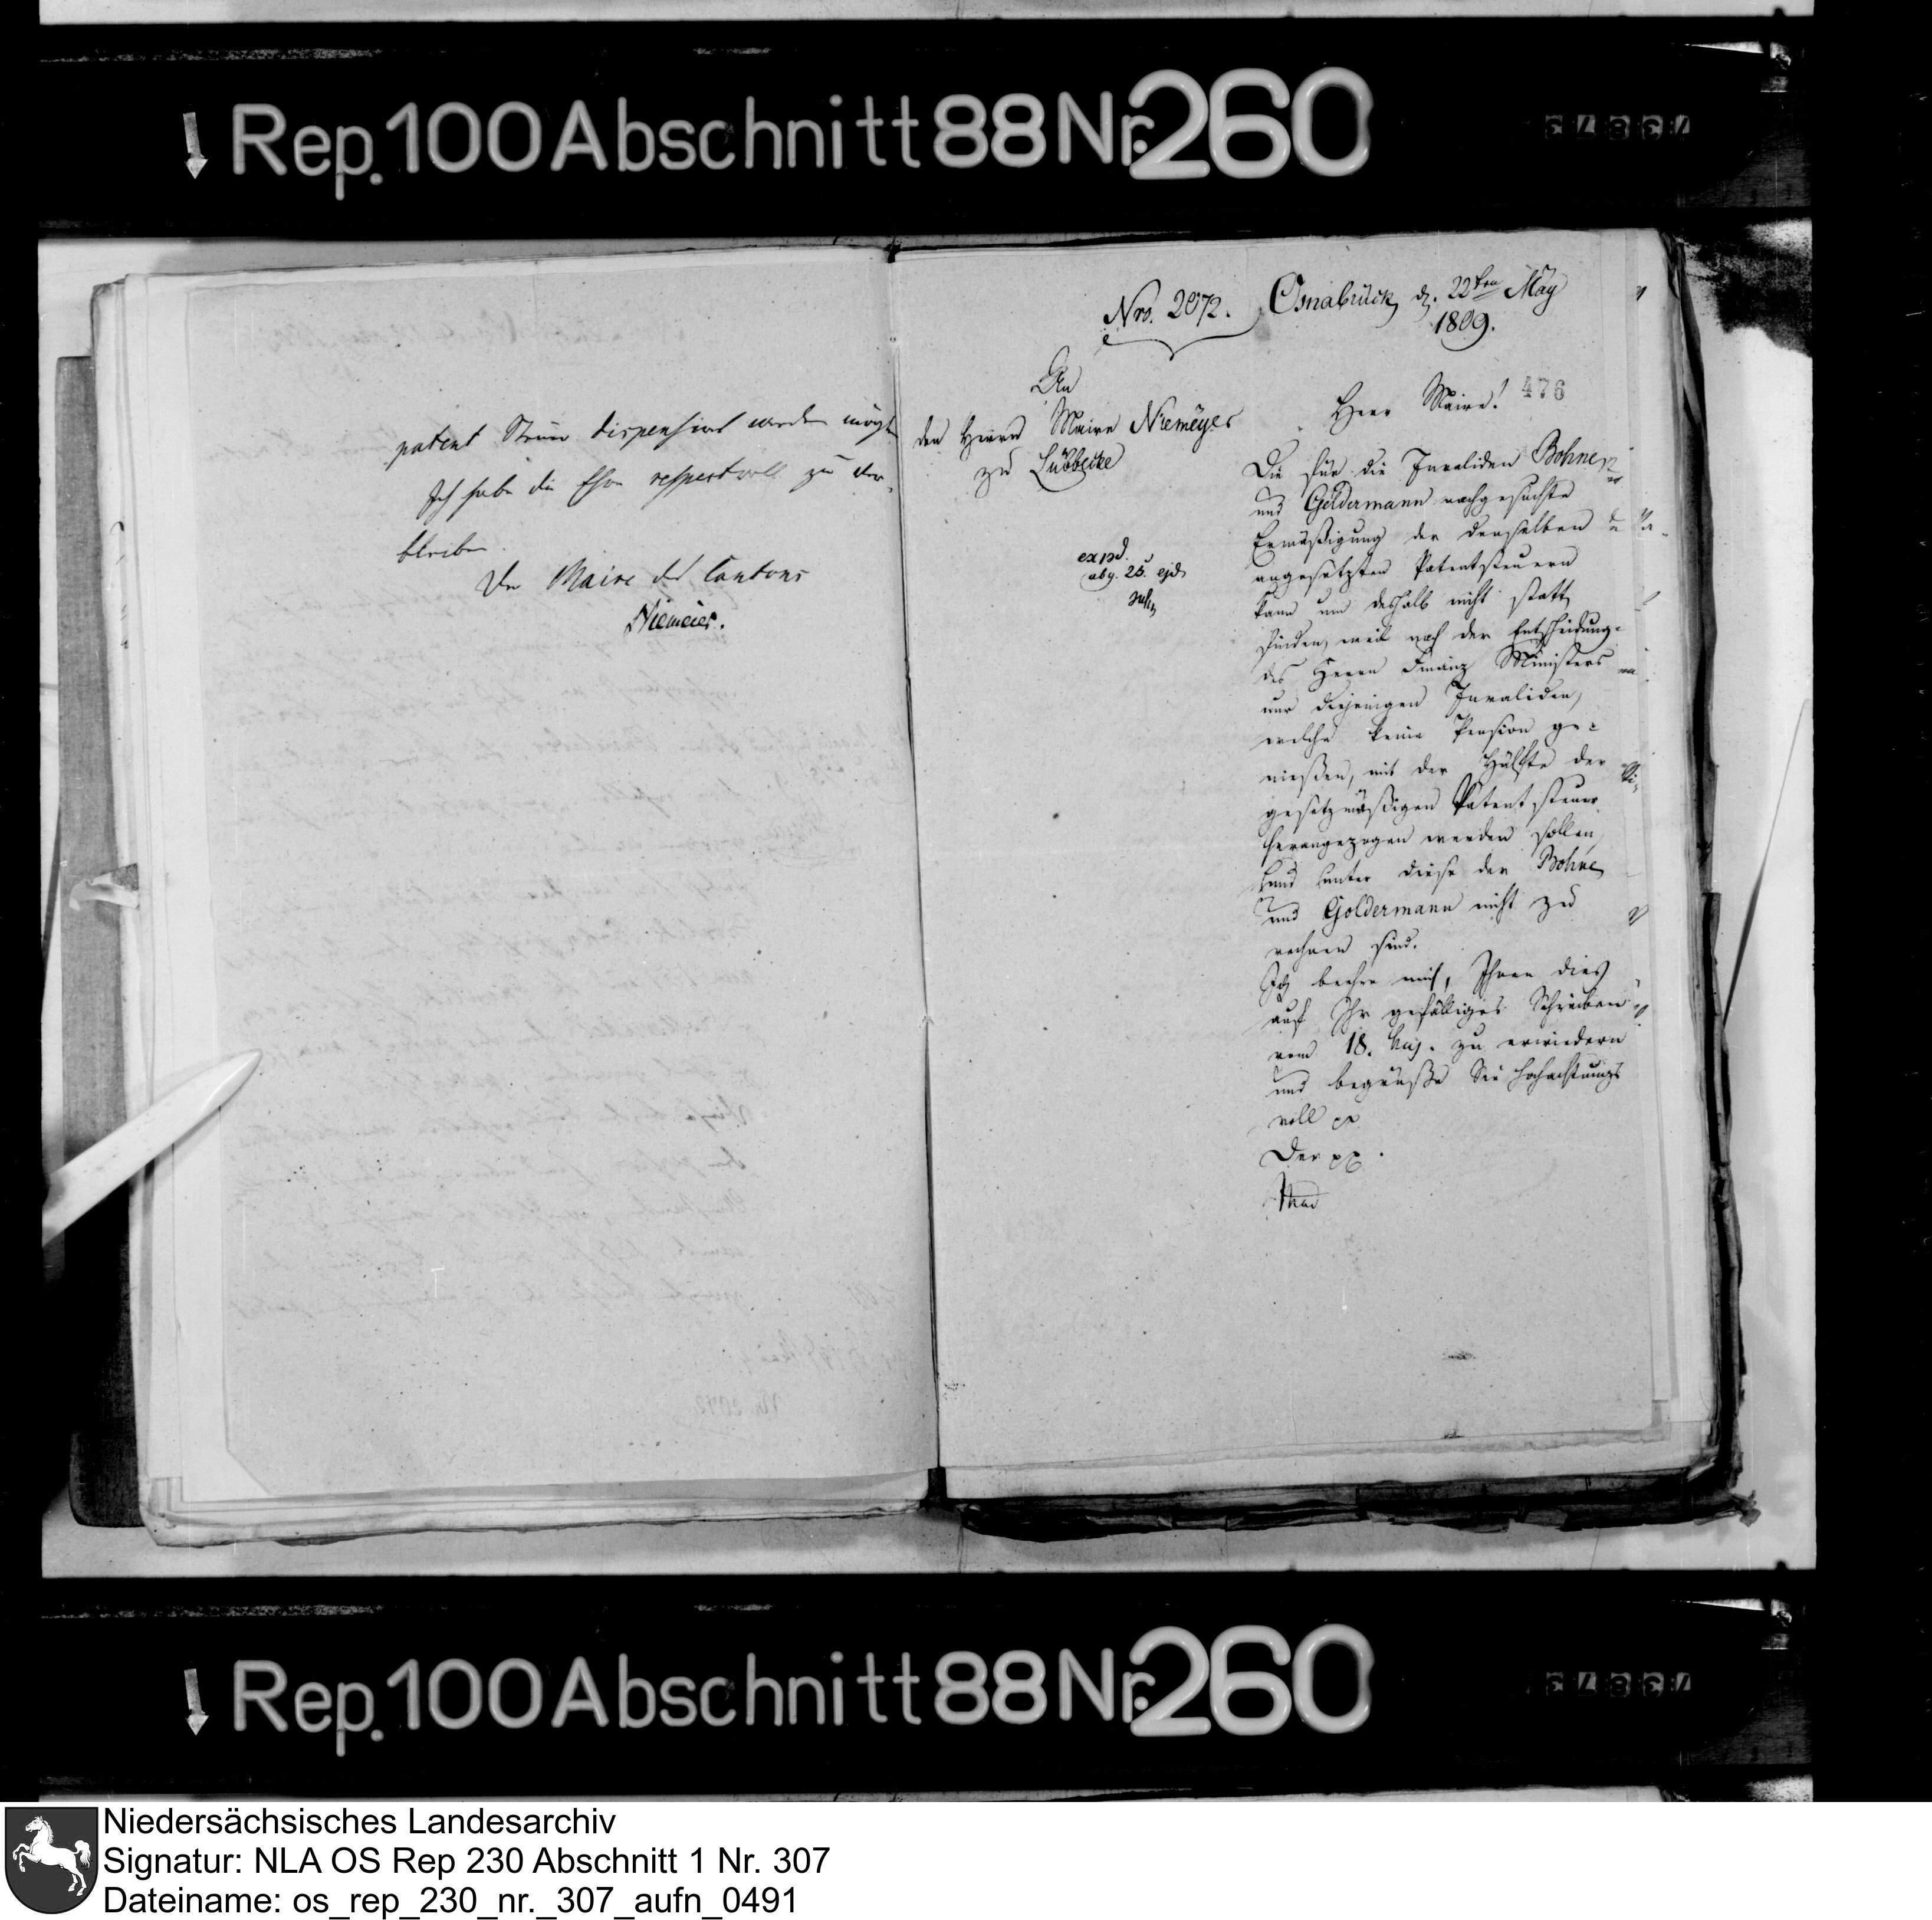 Rep. 100 Abschnitt 88 Nr. 260
patent Steuer dispensirt werden mögte
Ich habe die Ehre respectvoll zu ver-
bleiben.
Der Maire des Cantons
Niemeier.
Nro. 2072. Osnabrück, d. 22ten May
1809.
476
An
den Herrn Maire Niemeyer
zu Lübbecke
expd.
abg. 25. ejd.
Herr Maire!
Die für die Invaliden Bohne
und Goldermann nachgesuchte
Ermäßigung der denselben
angesetzten Patentsteuern
kann um deshalb nicht statt
finden, weil nach der Entscheidung
des Herrn Finanz Ministers
nur diejenigen Invaliden,
welche keine Pension ge-
nießen, mit der Hälfte der
gesetzmäßigen Patentsteuer
herangezogen werden sollen,
und unter diese der Bohne
und Goldermann nicht zu
rechnen sind.
Ich beehre mich, Ihnen dies
auf Ihr gefälliges Schreiben
vom 18. huj. zu erwiedern
und begrüße Sie hochachtungs
voll
Der
Rep. 100 Abschnitt 88 Nr. 260
Niedersächsisches Landesarchiv
Signatur: NLA OS Rep 230 Abschnitt 1 Nr. 307
Dateiname: os_rep_230_nr._307_aufn_0491